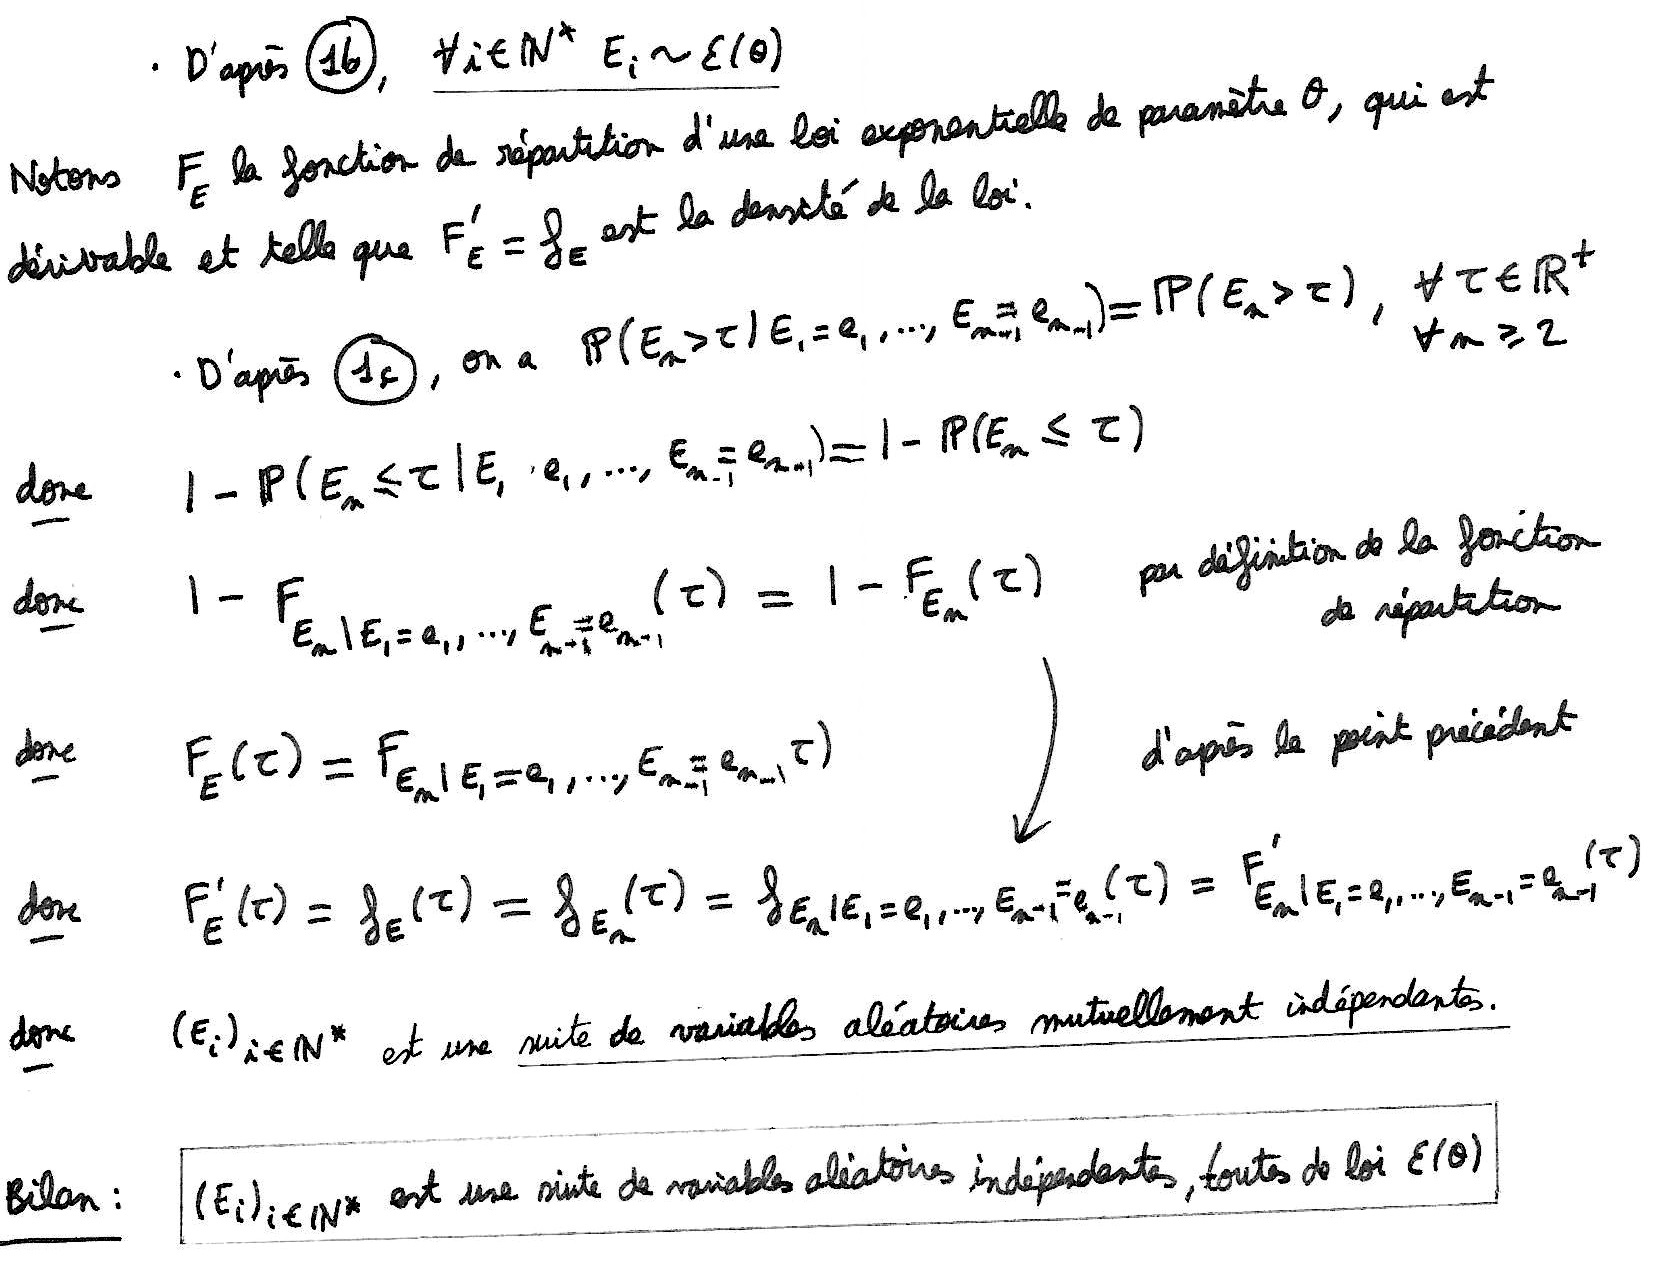 · D'après (1b), ∀i∈ℕ* E_i ~ ℰ(θ)
Notons F_E la fonction de répartition d'une loi exponentielle de paramètre θ, qui est
dérivable et telle que F'_E = f_E est la densité de la loi.
· D'après (1c), on a ℙ(E_n > τ | E_1 = e_1, ..., E_{n-1} = e_{n-1}) = ℙ(E_n > τ), ∀τ∈ℝ^+
∀n ≥ 2
donc 1 - ℙ(E_n ≤ τ | E_1 · e_1, ..., E_{n-1} = e_{n-1}) = 1 - ℙ(E_n ≤ τ)
donc 1 - F_{E_n | E_1 = e_1, ..., E_{n-1} = e_{n-1}}(τ) = 1 - F_{E_n}(τ) par définition de la fonction
de répartition
donc F_E(τ) = F_{E_n | E_1 = e_1, ..., E_{n-1} = e_{n-1}} τ) d'après le point précédent
donc F'_E(τ) = f_E(τ) = f_{E_n}(τ) = f_{E_n | E_1 = e_1, ..., E_{n-1} = e_{n-1}}(τ) = F'_{E_n | E_1 = e_1, ..., E_{n-1} = e_{n-1}}(τ)
donc (E_i)_{i∈ℕ*} est une suite de variables aléatoires mutuellement indépendantes.
Bilan : (E_i)_{i∈ℕ*} est une suite de variables aléatoires indépendantes, toutes de loi ℰ(θ)